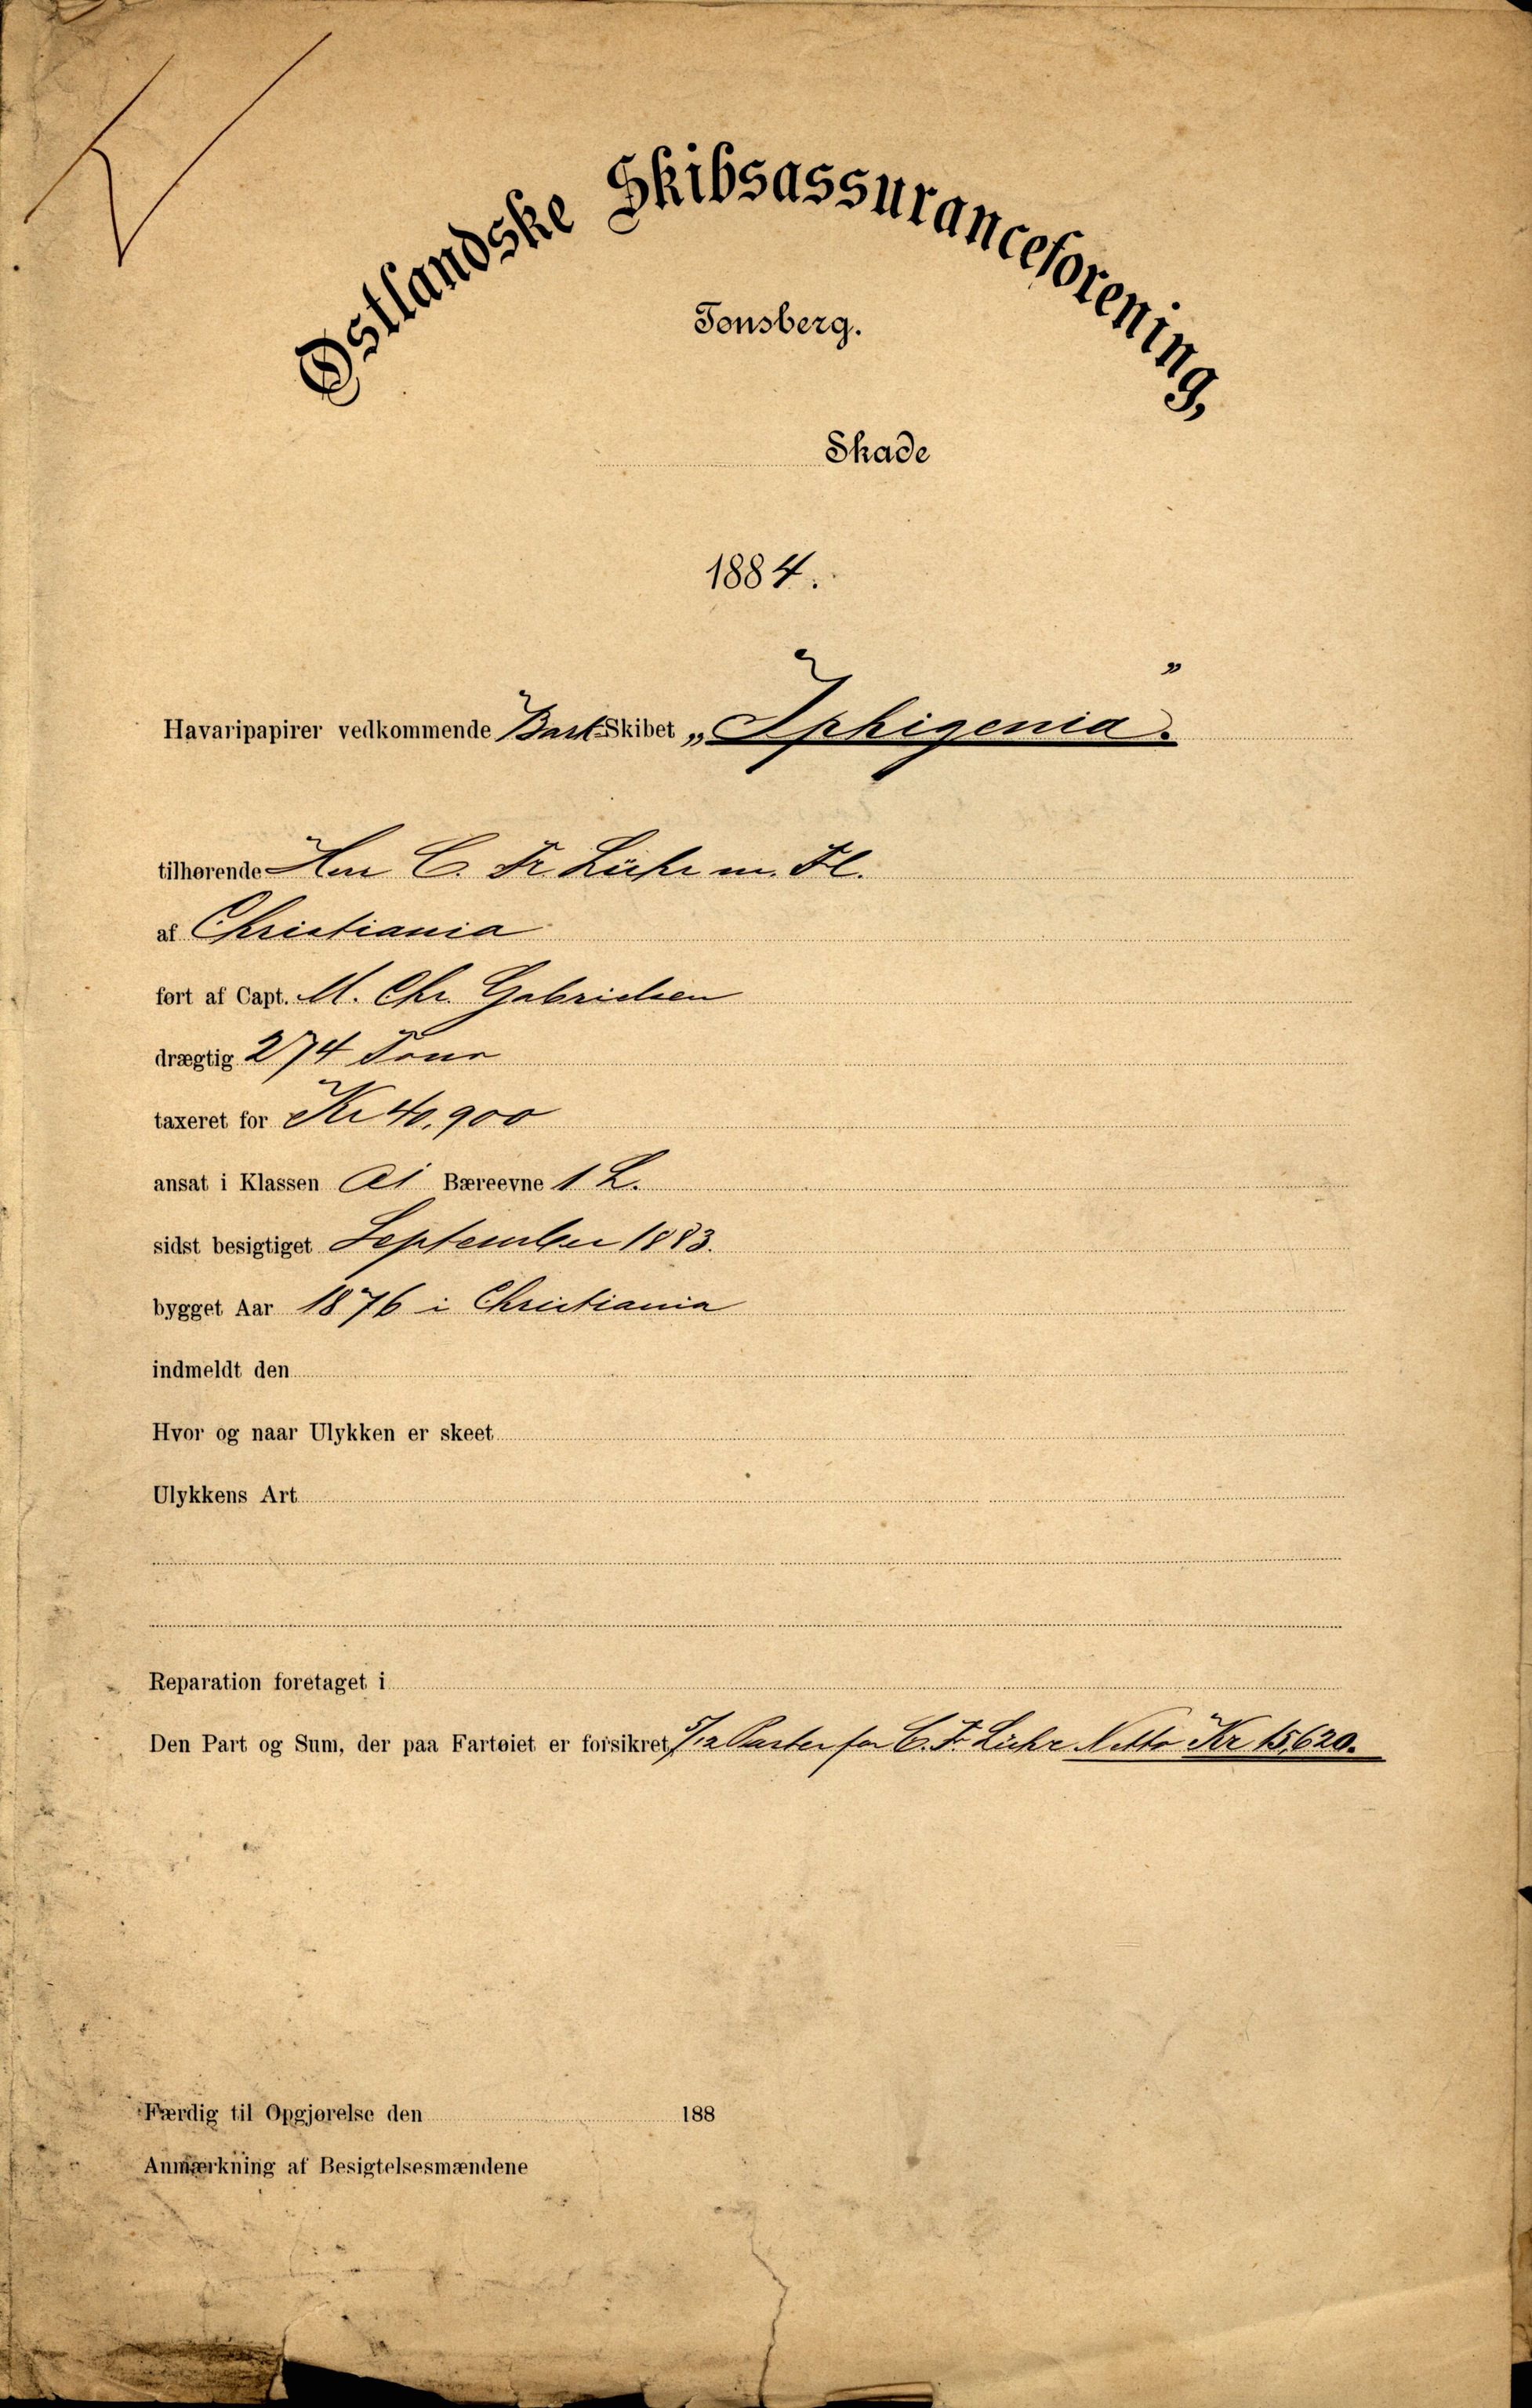 Østlandske Skibsassuranceforening,
Tønsberg.
Skade
1884.
Havaripapirer vedkommende Bark-Skibet „Iphigenia”.
tilhørende Herr C. Fr. Lühr m. Fl.
af Christiania
ført af Capt. M. Chr. Gabrielsen
drægtig 274 Tons
taxeret for Kr 40,900
ansat i Klassen A1 Bæreevne 1 L.
sidst besigtiget September 1883.
bygget Aar 1876 i Christiania
indmeldt den
Hvor og naar Ulykken er skeet
Ulykkens Art
Reparation foretaget i
Den Part og Sum, der paa Fartøiet er forsikret, 5/12 Parter for C. F. Lühr Netto Kr 15,620.
Færdig til Opgjørelse den 188
Anmærkning af Besigtelsesmændene